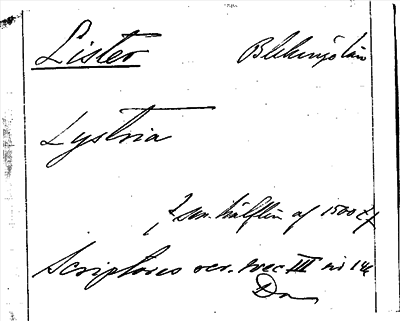 Lister Blekinge län
Lystria
sen. hälften af 1500 t.
Scriptores rer. svec III